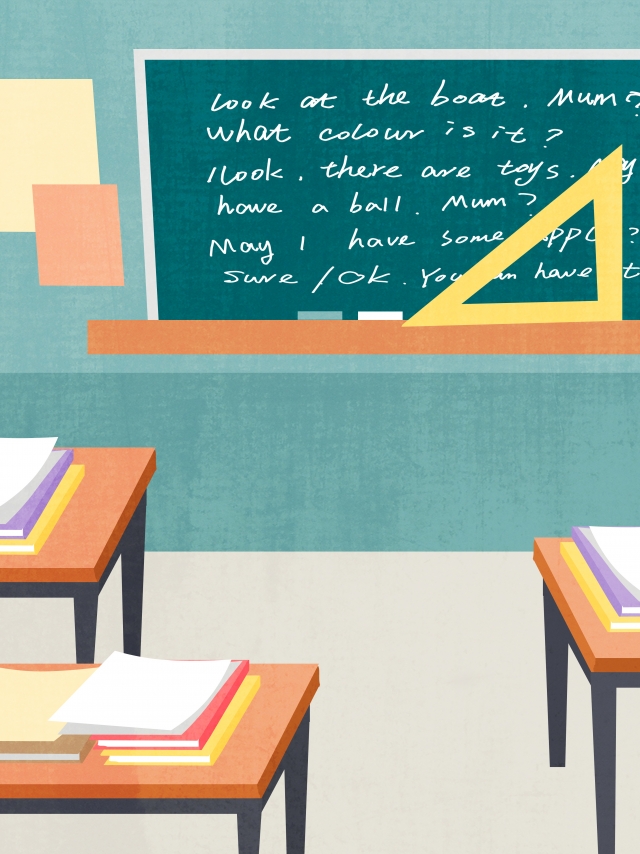 look at the boat. Mum?
What colour is it?
look, there are toys.
howe a ball. Mum?
May I have some ?
Sure / Ok. You have